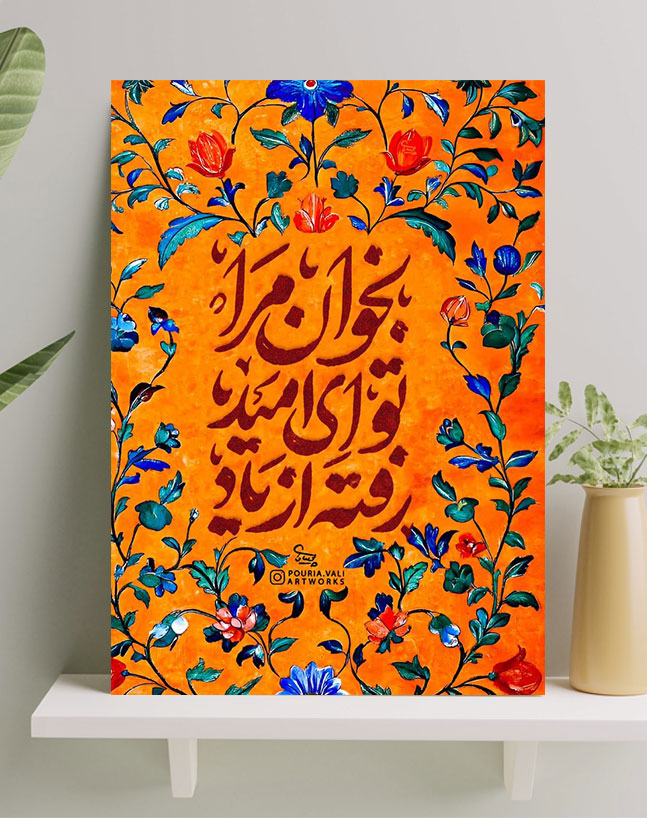 بخوان مرا
تو ای امید
رفته از یاد
POURIA.VALI
ARTWORKS